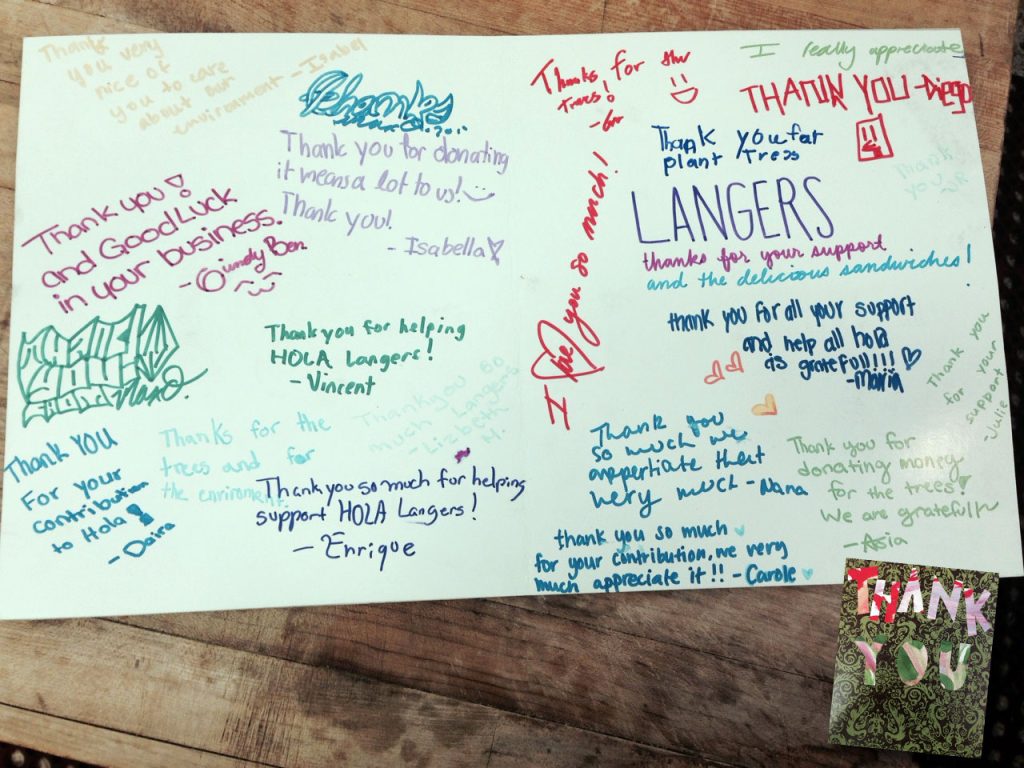 Thank
you very
nice of
you to care
about our
environment - Isabel
Thank you for donating
it means a lot to us!
Thank you!
- Isabella
Thank you!
and Good Luck
in your business.
Thank you for helping
HOLA Langers!
- Vincent
Thank you so
much Langers
- Lizbeth
M.
Thank you
For your
contribution
to Hola!
- Daira
Thanks for the
trees and for
the enviroment
Thank you so much for helping
support HOLA Langers!
- Enrique
Thanks, for the
trees!
I love you so much!
I really appreciate
THANK YOU - Diego
Thank you for
plant Tress
Thank
you - JR
LANGERS
thanks for your support
and the delicious sandwiches!
thank you for all your support
and help all hola
is gratefull!!!
- Maria
Thank you
for your
support
- Julie
Thank you
so much we
that
very much - Nana
Thank you for
donating money
for the trees!
We are gratefull
- Asia
thank you so much
for your contribution, we very
much appreciate it!! - Carole
THANK
YOU